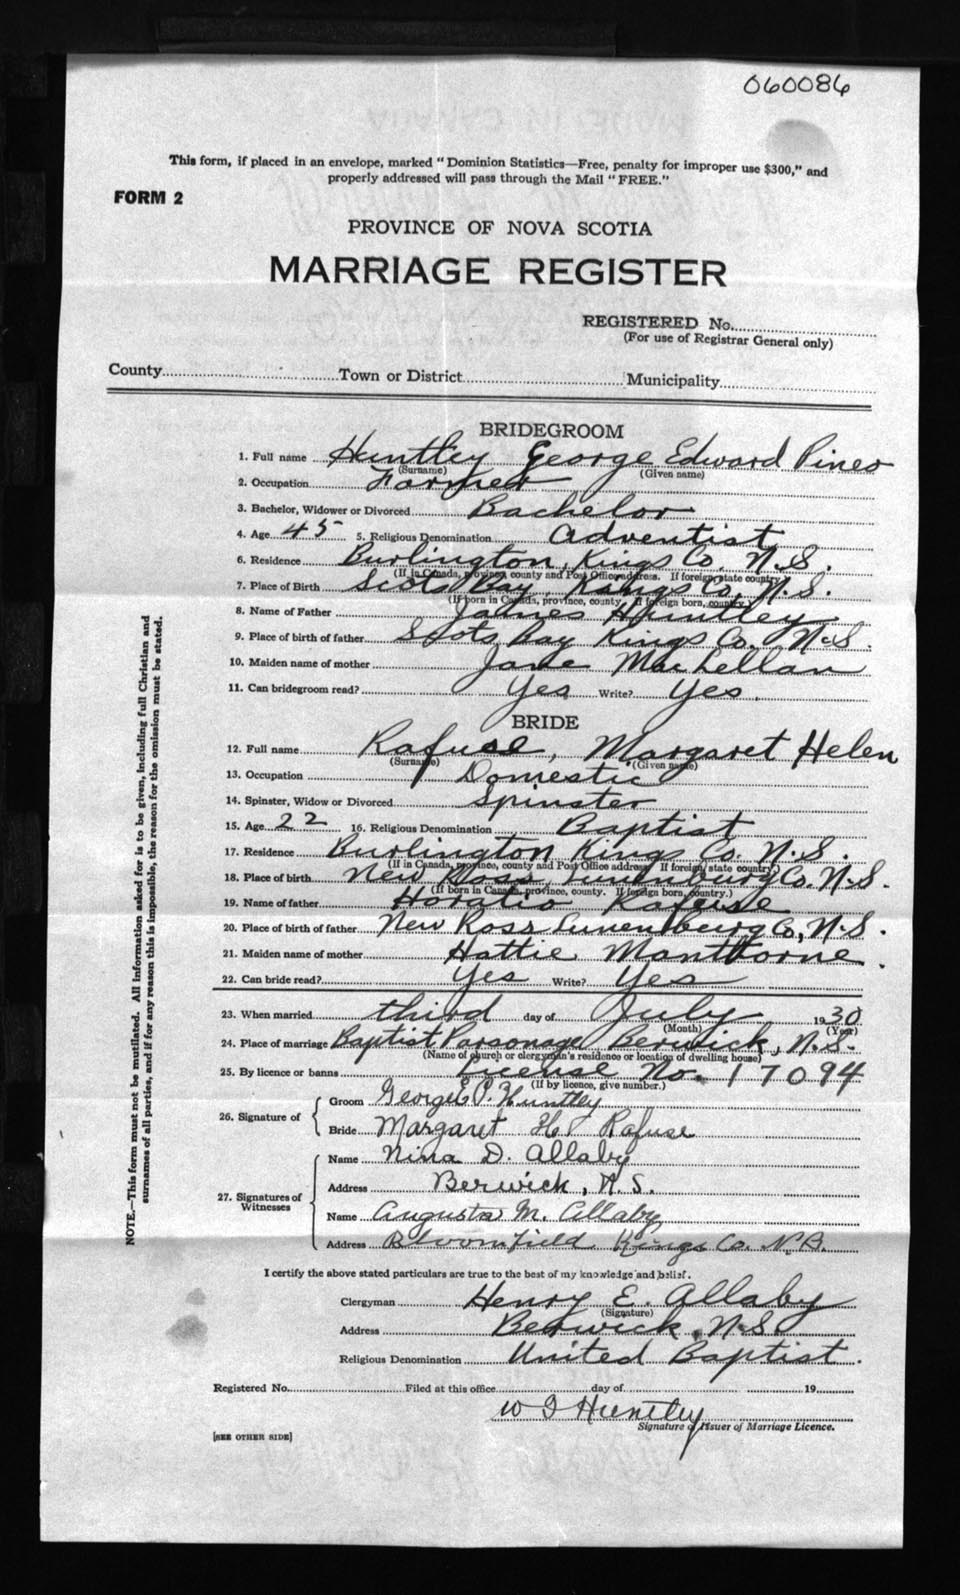 060086
This form, if placed in an envelope, marked "Dominion Statistics—Free, penalty for improper use $300," and
properly addressed will pass through the Mail "FREE."
FORM 2
PROVINCE OF NOVA SCOTIA
MARRIAGE REGISTER
REGISTERED No.
(For use of Registrar General only)
County Town or District Municipality
BRIDEGROOM
1. Full name Huntley George Edward Pineo
(Surname) (Given name)
2. Occupation Farmer
3. Bachelor, Widower or Divorced Bachelor
4. Age 45 5. Religious Denomination Adventist
6. Residence Burlington, Kings Co. N.S.
(If in Canada, province, county and Post Office address. If foreign, state country)
7. Place of Birth Scots Bay, Kings Co, N.S.
(If born in Canada, province, county. If foreign born, country.)
8. Name of Father James Huntley
9. Place of birth of father Scots Bay Kings Co. N.S.
10. Maiden name of mother Jane MacLellan
11. Can bridegroom read? Yes Write? Yes.
BRIDE
12. Full name Rafuse, Margaret Helen
(Surname) (Given name)
13. Occupation Domestic
14. Spinster, Widow or Divorced Spinster
15. Age 22 16. Religious Denomination Baptist
17. Residence Burlington Kings Co. N.S.
(If in Canada, province, county and Post Office address. If foreign, state country.)
18. Place of birth New Ross Lunenburg Co. N.S.
(If born in Canada, province, county. If foreign born, country.)
19. Name of father Horatio Rafuse
20. Place of birth of father New Ross Lunenburg Co, N.S.
21. Maiden name of mother Hattie Manthorne.
22. Can bride read? Yes Write? Yes
23. When married third day of July 1930
(Month) (Year)
24. Place of marriage Baptist Parsonage Berwick, N.S.
(Name of church or clergyman's residence or location of dwelling house)
25. By licence or banns License No. 17094
(If by licence, give number.)
26. Signature of
Groom George E. P. Huntley
Bride Margaret H. Rafuse
27. Signatures of Witnesses
Name Nina D. Allaby
Address Berwick, N.S.
Name Augusta M. Allaby
Address Bloomfield Kings Co. N.B.
I certify the above stated particulars are true to the best of my knowledge and belief.
Clergyman Henry E. Allaby
(Signature)
Address Berwick, N.S.
Religious Denomination United Baptist.
Registered No. Filed at this office day of 19
W I Huntley
Signature of Issuer of Marriage Licence.
[SEE OTHER SIDE]
NOTE.—This form must not be mutilated. All information asked for is to be given, including full Christian and
surnames of all parties, and if for any reason this is impossible, the reason for the omission must be stated.